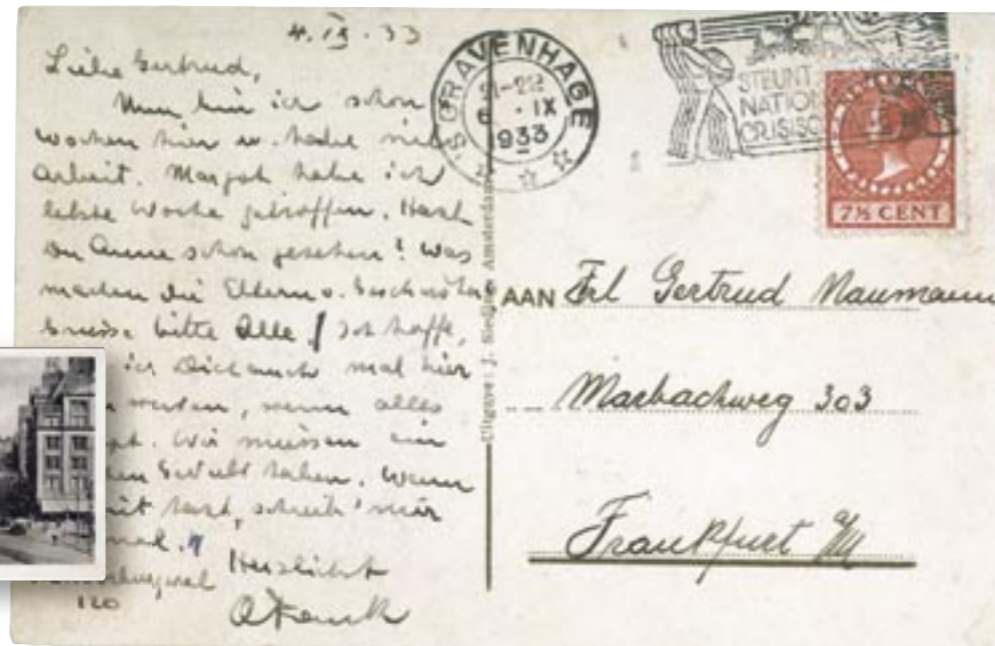 4. IX. 33
Liebe Gertrud,
Nun bin ich schon
Wochen hier u. habe viel
Arbeit. Margot habe ich
letzte Woche getroffen. Hast
Du Anne schon gesehen? Was
machen die Eltern u. Geschwister
Grüsse bitte Alle! Ich hoffe,
ich Dich auch mal hier
werden, wenn alles
Wir müssen ein
Geduld haben. Wenn
hast, schreib' mir
mal.
Herzlichst
120
O Frank
'S GRAVENHAGE
21-22
6 . IX
1933
STEUNT
NATIO
CRISISC
7½ CENT
Uitgave: J. Amsterdam
AAN Frl Gertrud Naumann
Marbachweg 303
Frankfurt a/M